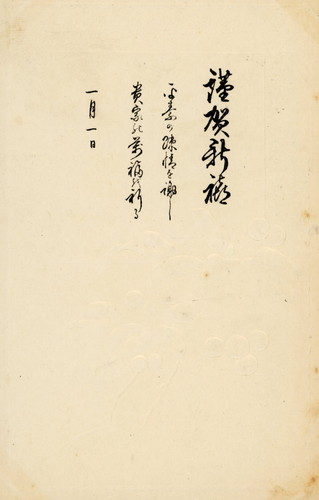 謹賀新禧
平素の疎情を謝し
貴家の萬福を祈る
一月一日